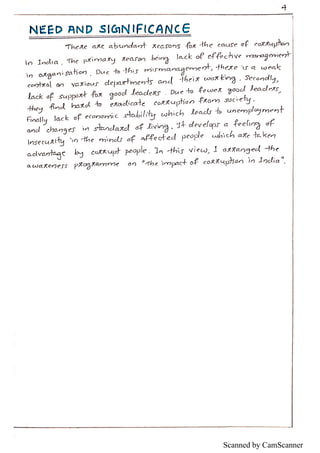 4
NEED AND SIGNIFICANCE
There are abundant reasons for the cause of corruption
in India. The primary reason being lack of effective management
in organisation. Due to this mismanagement, there is a weak
control on various departments and their working. Secondly,
lack of support for good leaders. Due to fewer good leaders,
they find hard to eradicate corruption from society.
Finally lack of economic stability which leads to unemployment
and changes in standard of living. It develops a feeling of
insecurity in the minds of affected people which are taken
advantage by corrupt people. In this view, I arranged the
awareness programme on "The impact of corruption in India".
Scanned by CamScanner